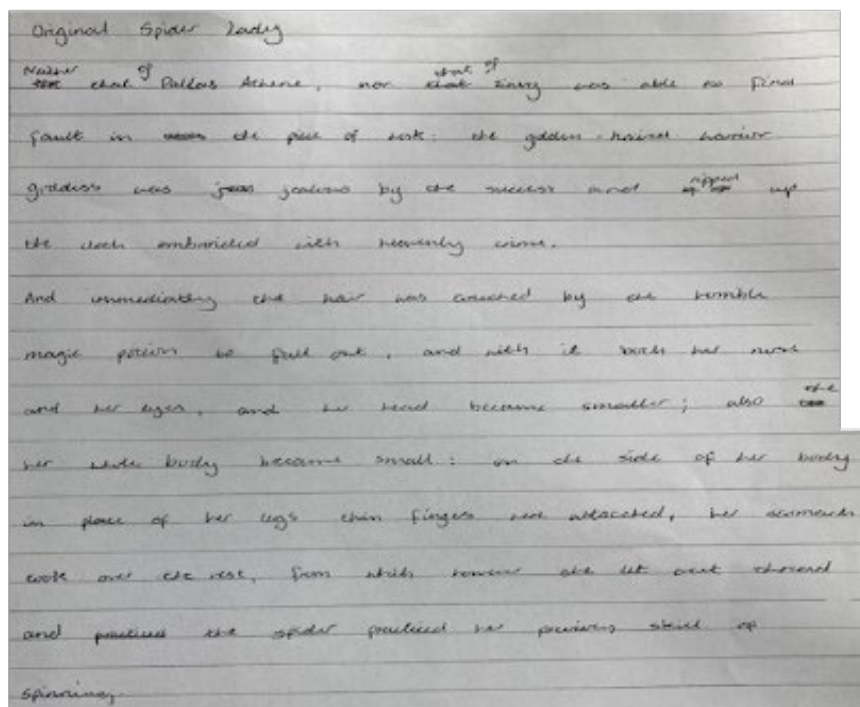 Original Spider Lady
Neither that of Pallas Athene, nor that of Envy was able to find
fault in the piece of work: the golden-haired warrior
goddess was jealous by the success and ripped up
the cloth embroided with heavenly crime.
And immediately the hair was touched by the terrible
magic potion to fall out, and with it both her nose
and her eyes, and her head became smaller; also the
her whole body became small: on the side of her body
in place of her legs thin fingers were attached, her stomach
took over the rest, from which however she let out thread
and practiced the spider practiced her previous skill of
spinning.